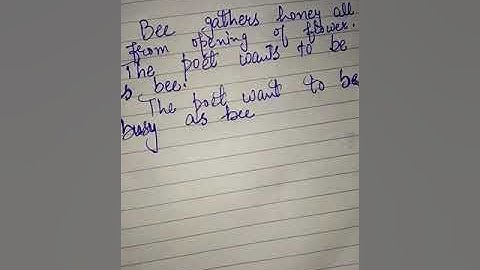 Bee gathers honey all
from opening of flower.
The poet wants to be
s bee.
The poet want to be
busy as bee